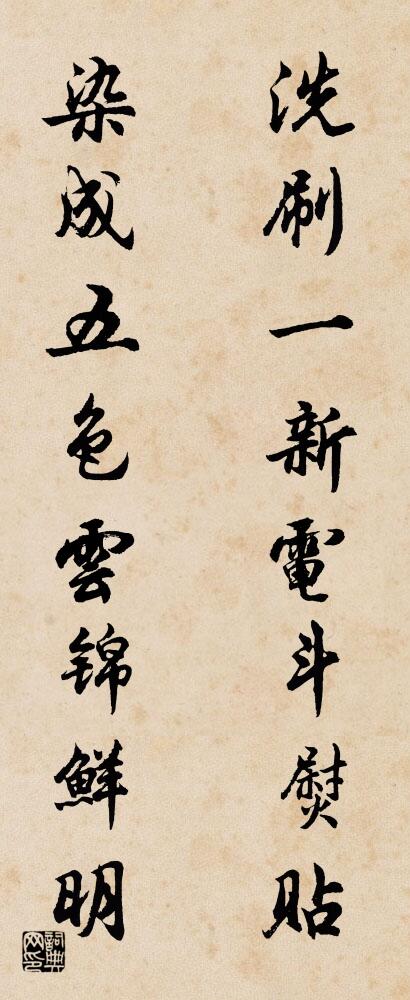 洗刷一新電斗熨貼
染成五色雲锦鮮明
詞典网印